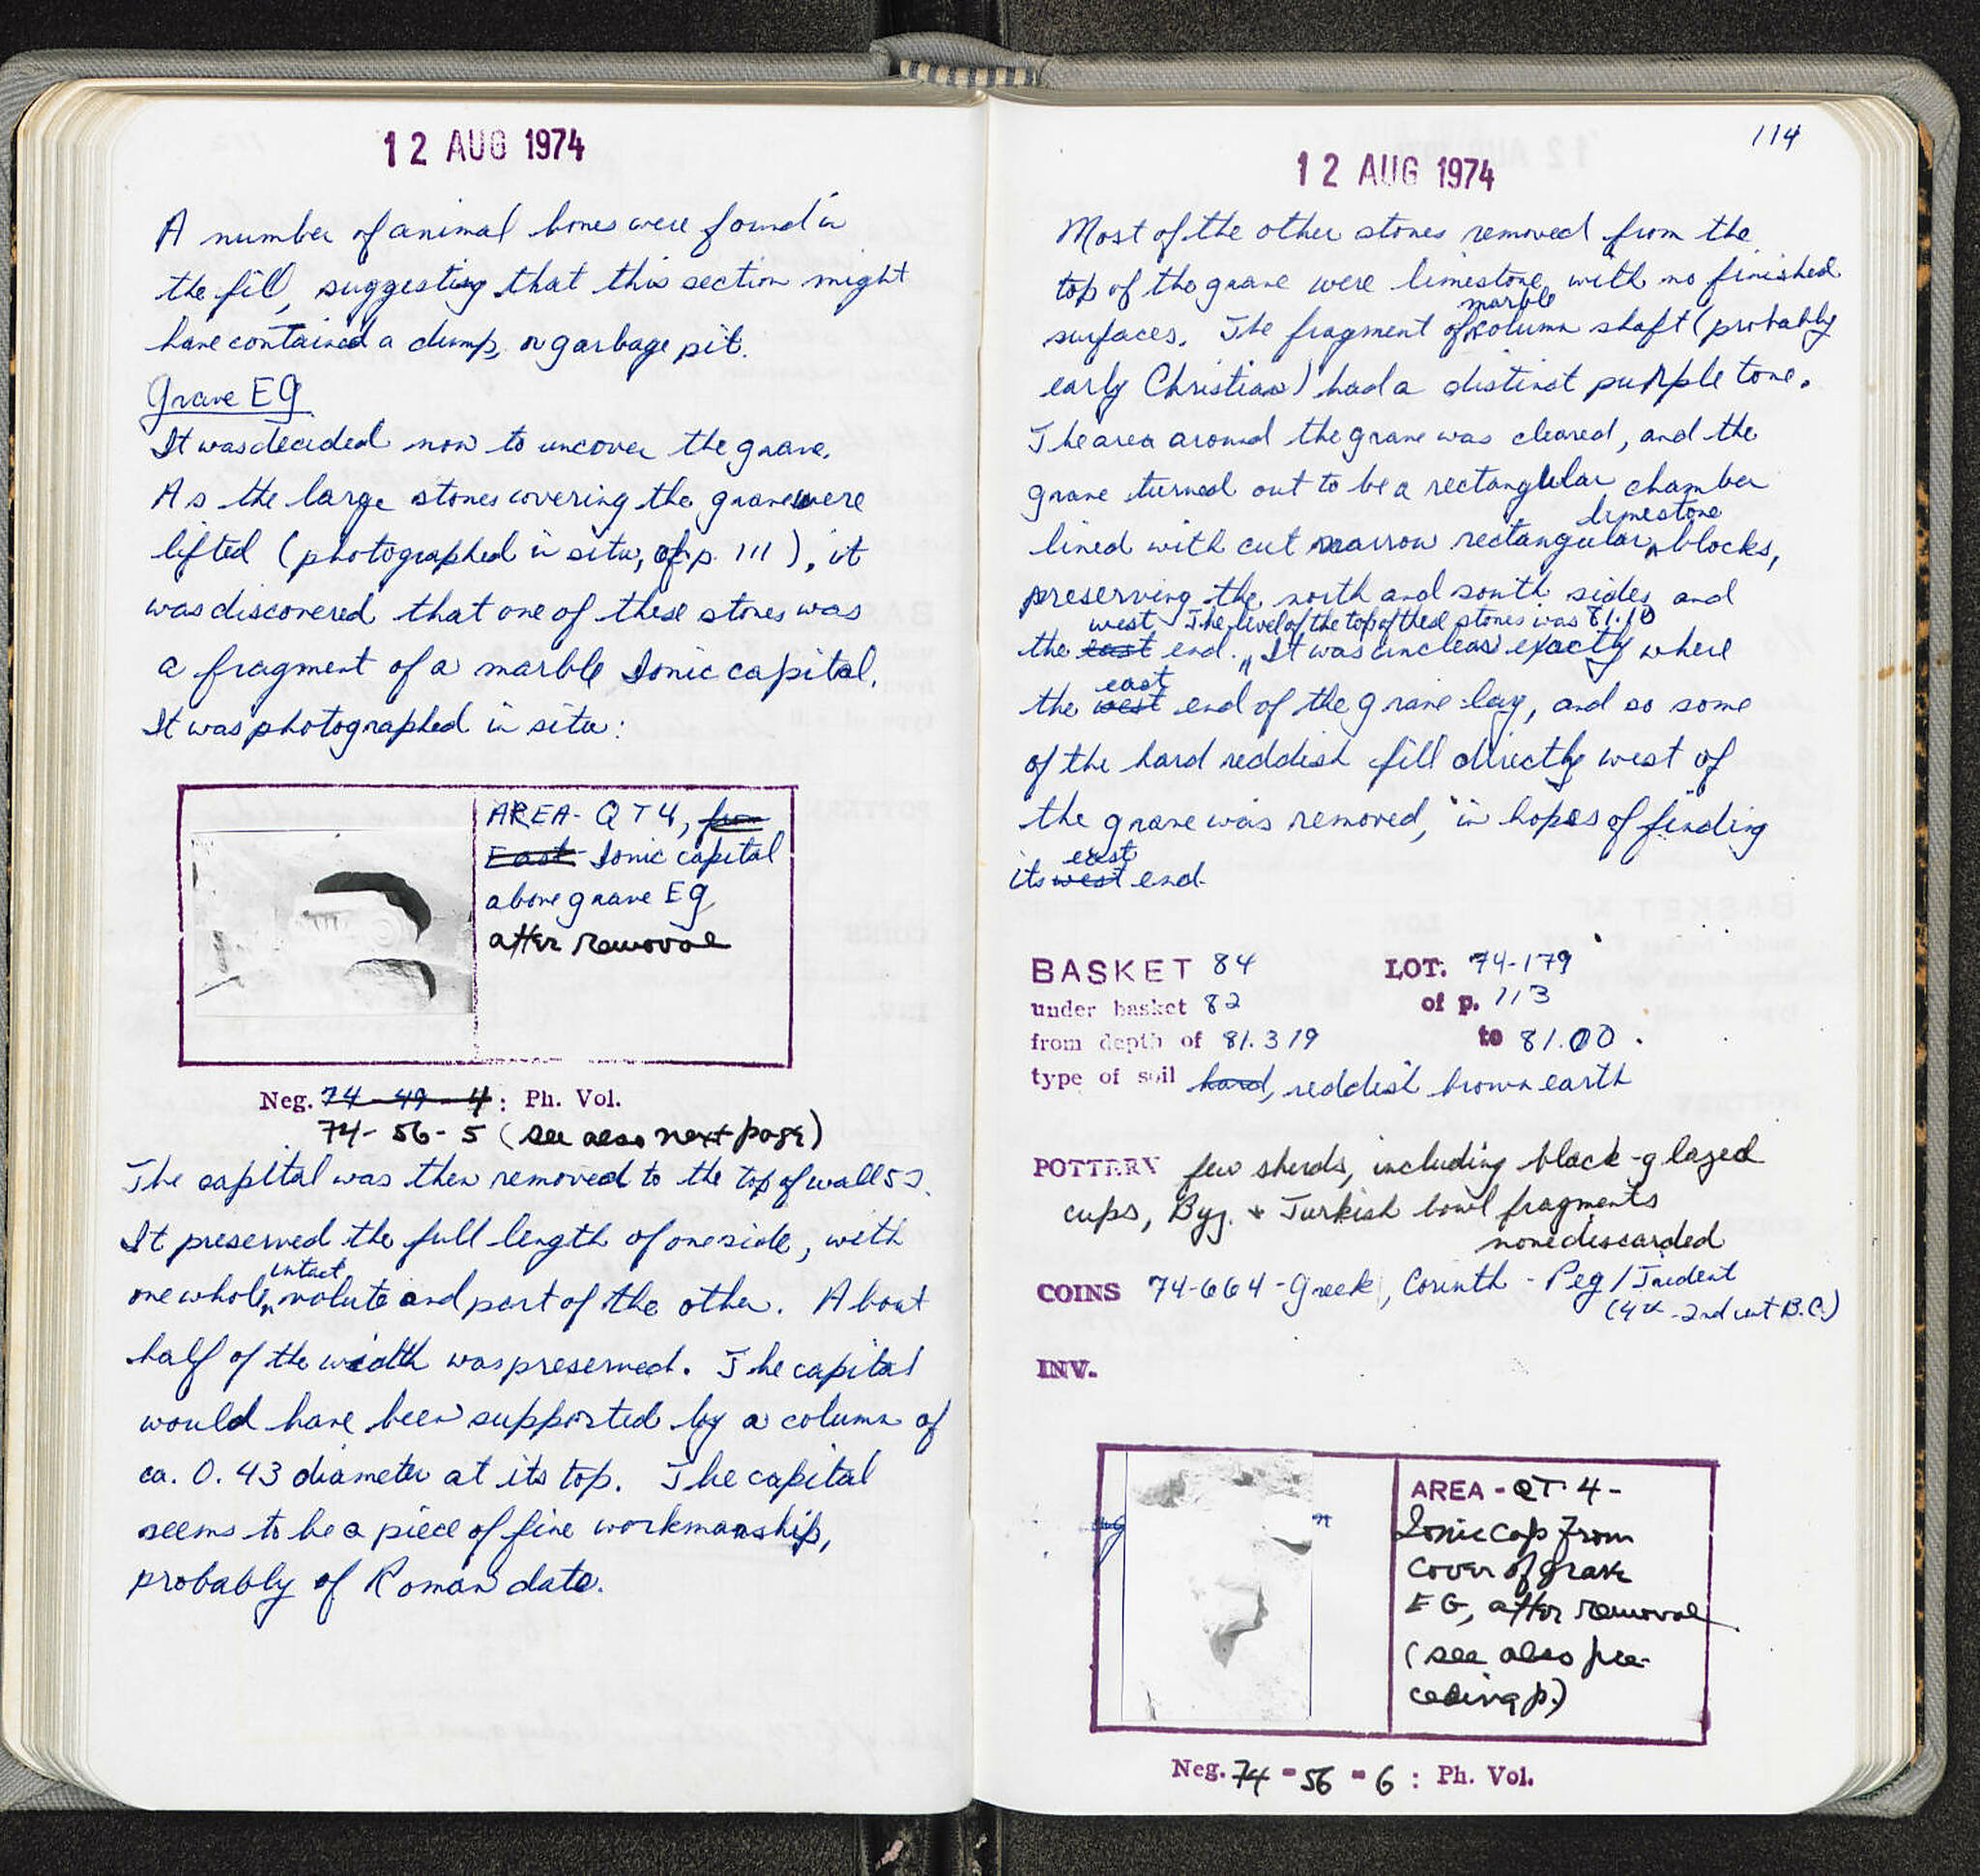 12 AUG 1974
A number of animal bones were found in
the fill, suggesting that this section might
have contained a dump, or garbage pit.
Grave EG
It was decided now to uncover the grave.
As the large stones covering the grave were
lifted (photographed in situ, cf p. 111), it
was discovered that one of these stones was
a fragment of a marble Ionic capital.
It was photographed in situ:
AREA - QT4, from
East Ionic capital
above grave EG
after removal
Neg. 74-49-4: Ph. Vol.
74-56-5 (see also next page)
The capital was then removed to the top of wall 53.
It preserved the full length of one side, with
intact
one whole volute and part of the other. About
half of the width was preserved. The capital
would have been supported by a column of
ca. 0.43 diameter at its top. The capital
seems to be a piece of fine workmanship,
probably of Roman date.
114
12 AUG 1974
Most of the other stones removed from the
top of the grave were limestone with no finished
marble
surfaces. The fragment of column shaft (probably
early Christian) had a distinct purple tone.
The area around the grave was cleared, and the
grave turned out to be a rectangular chamber
limestone
lined with cut narrow rectangular blocks,
preserving the north and south sides and
west The level of the top of these stones was 81.10
the east end. It was unclear exactly where
east
the west end of the grave lay, and so some
of the hard reddish fill directly west of
the grave was removed, in hopes of finding
east
its west end.
BASKET 84 LOT: 74-179
under basket 82 of p. 113
from depth of 81.319 to 81.00.
type of soil hard, reddish brown earth
POTTERY few sherds, including black-glazed
cups, Byz. + Turkish bowl fragments
none discarded
COINS 74-664 - Greek, Corinth - Peg/Trident
(4th-2nd cent B.C.)
INV.
AREA - QT 4 -
Ionic cap from
cover of grave
EG, after removal
(see also pre-
ceding p.)
Neg. 74-56-6: Ph. Vol.